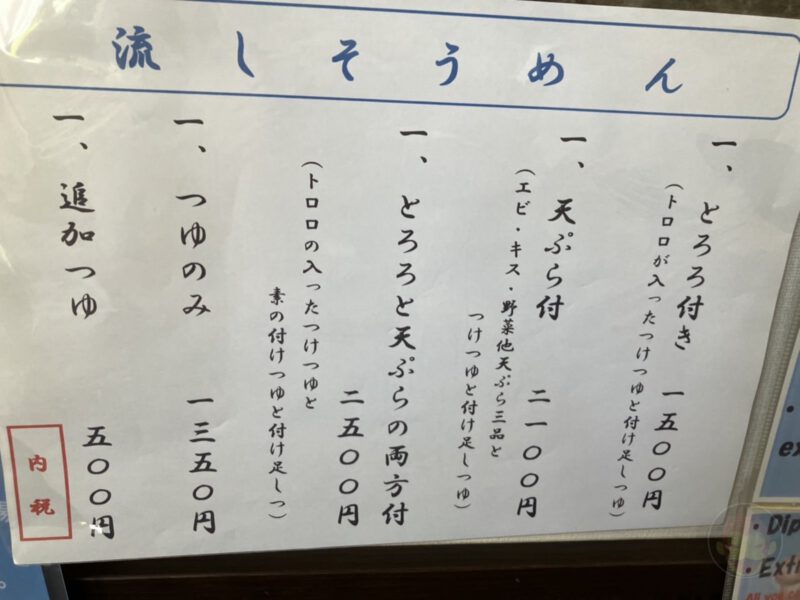 流しそうめん
一、とろろ付き 一五〇〇円
（トロロが入ったつけつゆと付け足しつゆ）
一、天ぷら付 二一〇〇円
（エビ・キス・野菜他天ぷら三品と
つけつゆと付け足しつゆ）
一、とろろと天ぷらの両方付
二五〇〇円
（トロロの入ったつけつゆと
素の付けつゆと付け足しつ）
一、つゆのみ 一三五〇円
一、追加つゆ 五〇〇円
内税
・Dip
・Ext